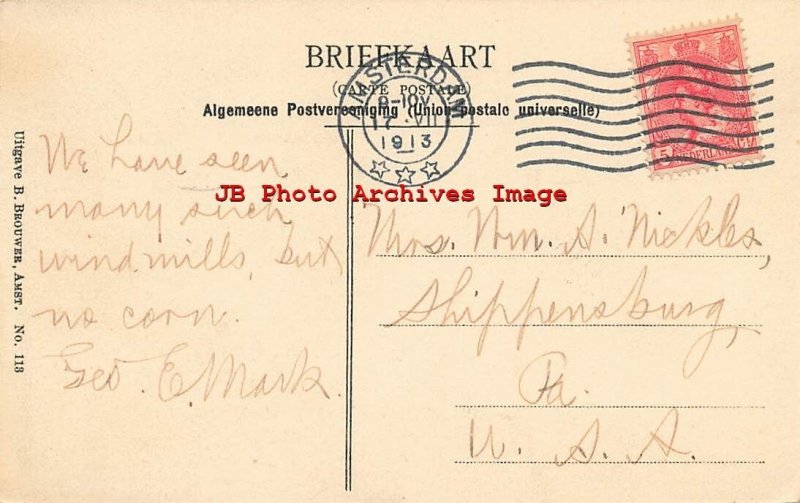 BRIEFKAART
(CARTE POSTALE)
Algemeene Postvereeniging (Union postale universelle)
AMSTERDAM
8-10V
17 VII
1913
5 NEDERLAND
JB Photo Archives Image
We have seen
many such
windmills, but
no corn.
Geo. E. Mark.
Mrs. Wm. A. Nickles,
Shippensburg
Pa.
U. S. A.
Uitgave B. BROUWER, AMST. No. 113